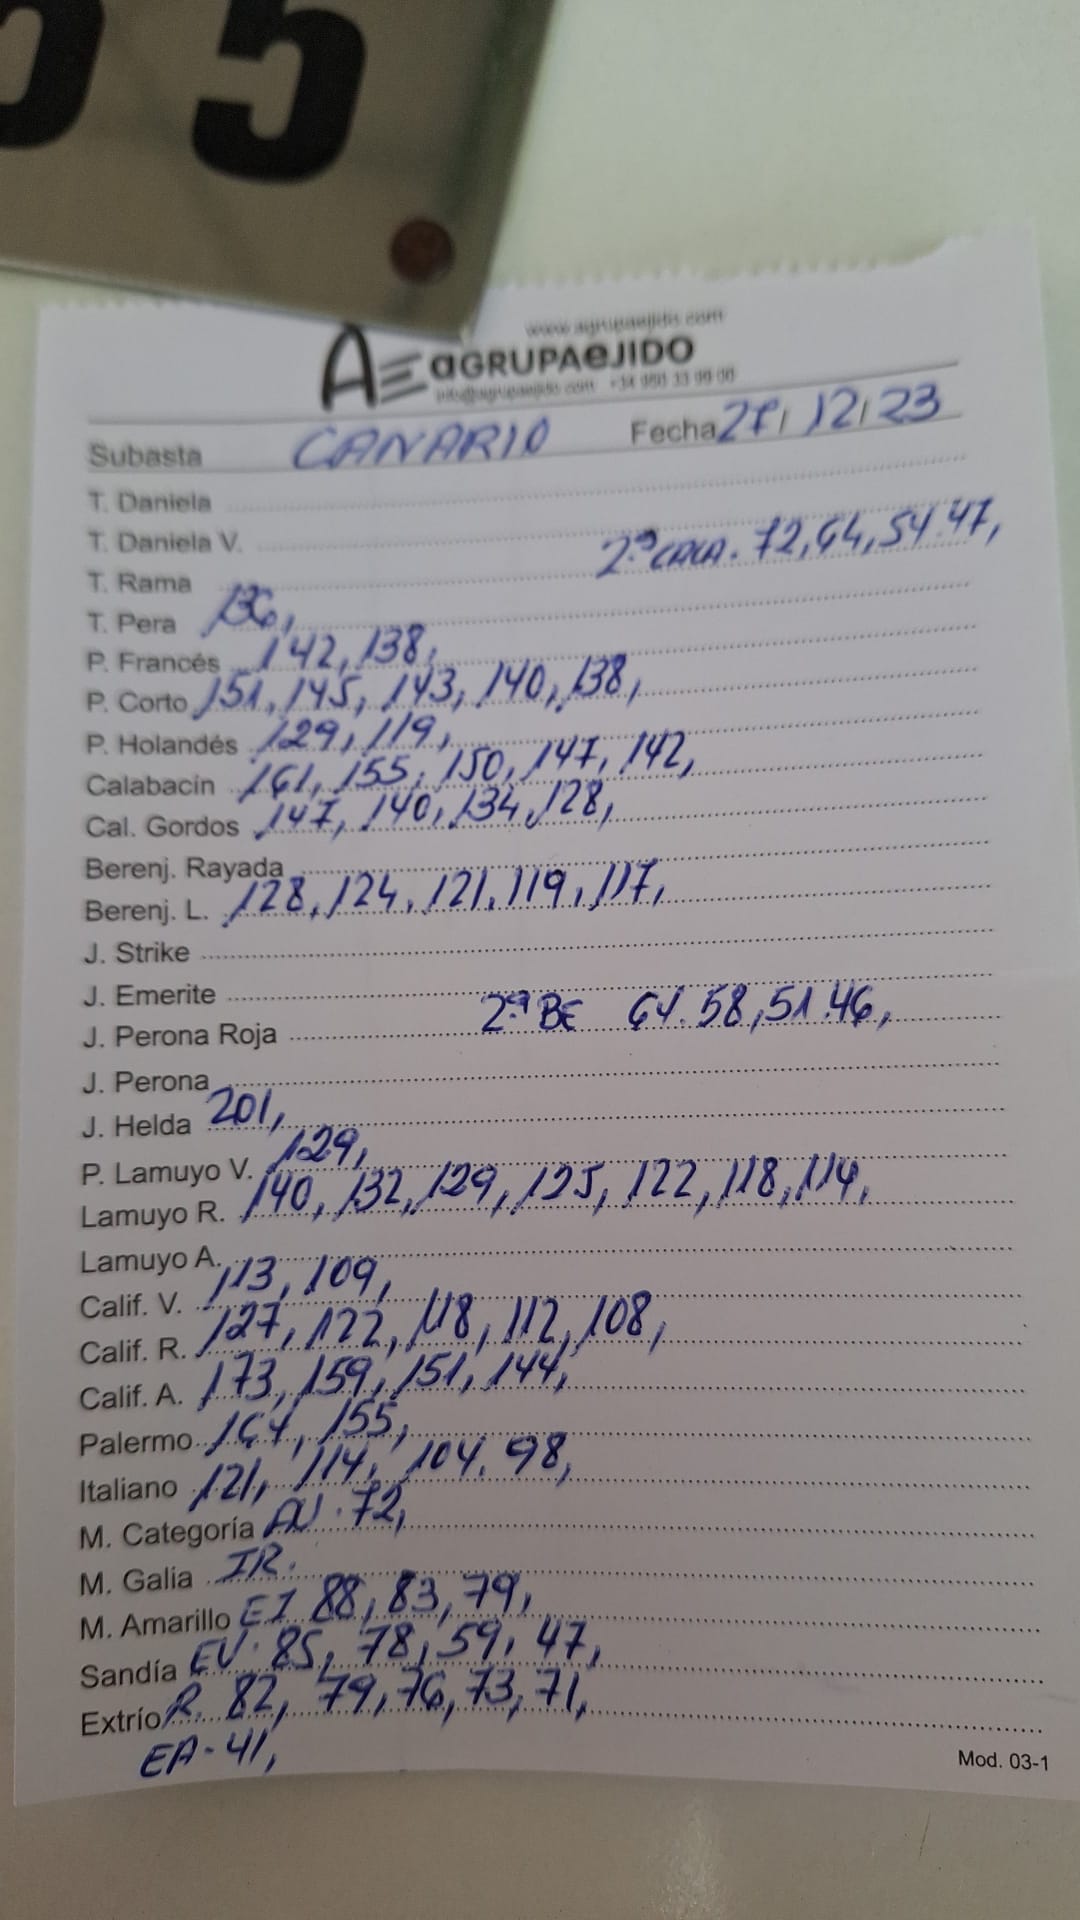 55
www.agrupaejido.com
AE aGRUPAeJIDO
info@agrupaejido.com +34 950 33 99 00
Subasta CANARIO Fecha 27/12/23
T. Daniela
T. Daniela V.
2.ª CALA. 72, 64, 54. 47,
T. Rama
T. Pera 136,
P. Francés 142, 138,
P. Corto 151, 145, 143, 140, 138,
P. Holandés 129, 119,
Calabacín 161, 155, 150, 147, 142,
Cal. Gordos 147, 140, 134, 128,
Berenj. Rayada
Berenj. L. 128, 124, 121, 119, 117,
J. Strike
J. Emerite
2.ª BE 64. 58, 51. 46,
J. Perona Roja
J. Perona
J. Helda 201,
P. Lamuyo V. 129,
Lamuyo R. 140, 132, 129, 125, 122, 118, 114,
Lamuyo A.
Calif. V. 113, 109,
Calif. R. 127, 122, 118, 112, 108,
Calif. A. 173, 159, 151, 144,
Palermo 164, 155,
Italiano 121, 114, 104. 98,
M. Categoría AV. 72,
M. Galia IR.
M. Amarillo EI 88, 83, 79,
Sandía EV. 85, 78, 59, 47,
Extrío R. 82, 79, 76, 73, 71,
EA - 41,
Mod. 03-1